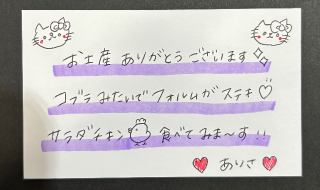 お土産 ありがとう ございます
コブラ みたいで フォルムが ステキ♡
サラダチキン 食べて みま〜す!!
ありさ